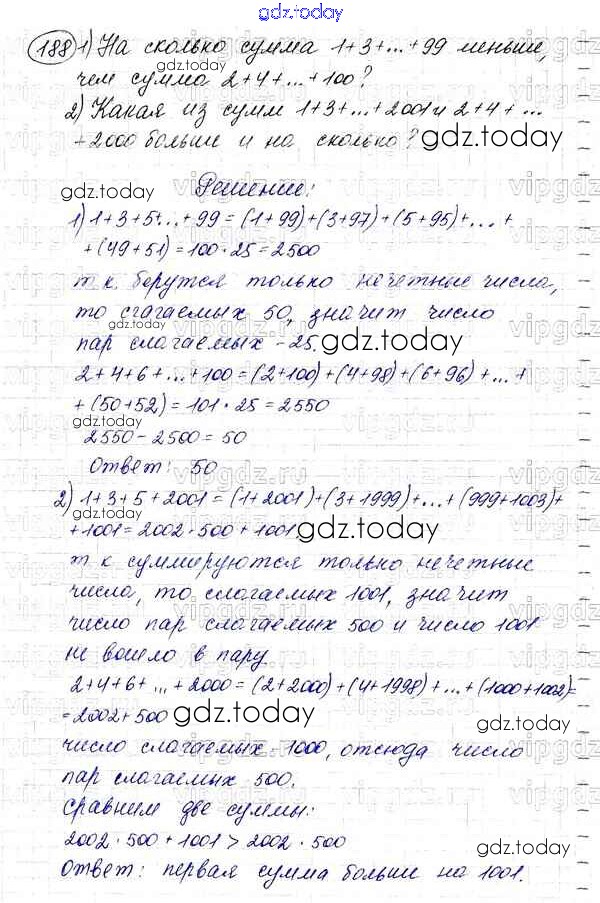 gdz.today
188 1) На сколько сумма 1+3+...+99 меньше,
чем сумма 2+4+...+100?
2) Какая из сумм 1+3+...+2001 и 2+4+...
+2000 больше и на сколько? gdz.today
gdz.today Решение:
1) 1+3+5+...+99 = (1+99)+(3+97)+(5+95)+...+
+(49+51)=100·25=2500
т.к. берутся только нечетные числа,
то сгагаемых 50, значит число
gdz.today
пар слагаемых - 25. gdz.today
2+4+6+...+100=(2+100)+(4+98)+(6+96)+...+
+(50+52)=101·25=2550
gdz.today
2550-2500=50
Ответ: 50
2) 1+3+5+2001=(1+2001)+(3+1999)+...+(999+1003)+
+1001=2002·500+1001 gdz.today
gdz.today
т к суммируются только нечетные
числа, то слагаемых 1001, значит
число пар слагаемых 500 и число 1001
не вошло в пару
2+4+6+...+2000=(2+2000)+(4+1998)+...+(1000+1002)=
=2002+500 gdz.today gdz.today
число слагаемых -1000, отсюда число
пар слагаемых 500.
Сравним две суммы:
2002·500+1001>2002·500 gdz.today
Ответ: первая сумма больше на 1001.